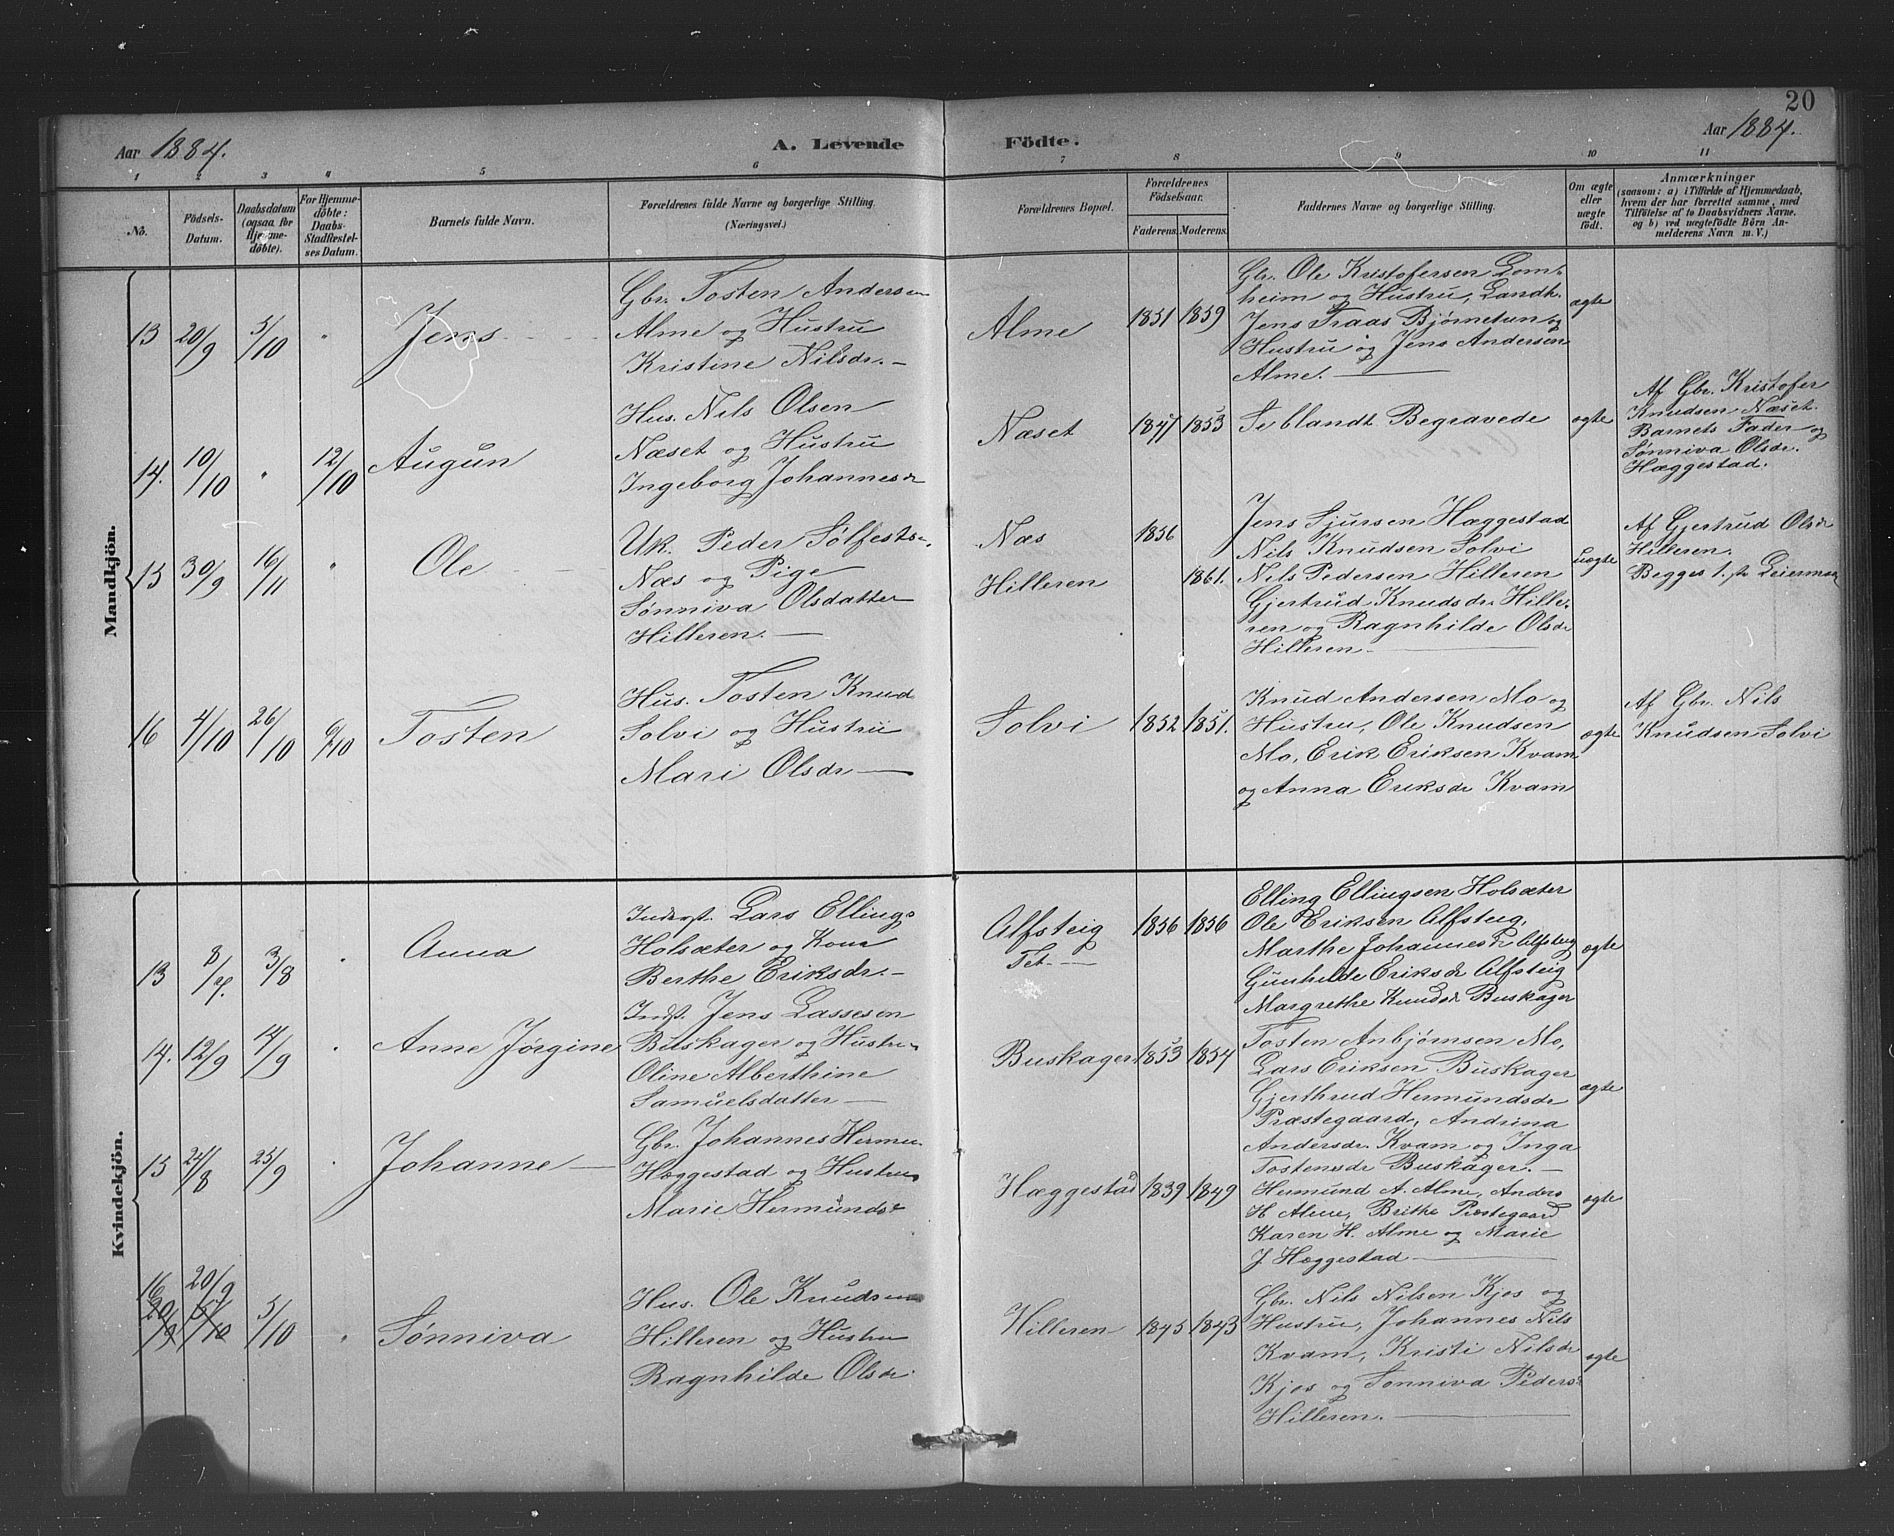 20
Aar 1884. A. Levende Födte. Aar 1884.
1 2 3 4 5 6 7 8 9 10 11
No.
Födsels-
Datum.
Daabsdatum
(ogsaa for
Hjemme-
döbte).
For Hjemme-
döbte:
Daabs-
Stadfæstel-
ses Datum.
Barnets fulde Navn.
Forældrenes fulde Navne og borgerlige Stilling.
(Næringsvei.)
Forældrenes Bopæl.
Forældrenes
Födselsaar.
Faderens. Moderens.
Faddernes Navne og borgerlige Stilling.
Om ægte
eller
uægte
födt.
Anmærkninger
(saasom: a) i Tilfælde af Hjemmedaab,
hvem der har forrettet samme, med
Tilföielse af to Daabsvidners Navne,
og b) ved uægtefödte Börn An-
melderens Navn m. V.)
Mandkjön.
13 20/9 5/10 " Jens
Gbr. Tosten Andersen
Alme og Hustru
Kristine Nilsdr.
Alme 1851 1859
Gbr. Ole Kristofersen Lom-
heim og Hustru, Landh.
Jens Traas Bjørnetun og
Hustru og Jens Andersen
Alme.
ægte
14. 10/10 " 12/10 Augun
Hus. Nils Olsen
Næset og Hustru
Ingeborg Johannesdr
Næset 1847 1853
Se blandt Begravede
ægte
Af Gbr. Kristofer
Knudsen Næset.
Barnets Fader og
Sønniva Olsdr.
Hæggestad.
15 30/9 16/11 " Ole
Uk. Peder Sølfests.
Næs og Pige
Sønniva Olsdatter
Hilleren.
Næs 1856
Hilleren 1861.
Jens Sjursen Hæggestad
Nils Knudsen Solvi
Nils Pedersen Hilleren
Gjertrud Knudsdr. Hille-
ren og Ragnhilde Olsdr
Hilleren.
Uægte
Af Gjertrud Olsdr
Hilleren.
Begges 1. Leiermaal
16 4/10 26/10 6/10 Tosten
Hus. Tosten Knud
Solvi og Hustru
Mari Olsdr
Solvi 1852 1851.
Knud Andersen Mo og
Hustru, Ole Knudsen
Mo, Erik Eriksen Kvam
og Anna Eriksdr Kvam
ægte
Af Gbr. Nils
Knudsen Solvi
Kvindekjön.
13 8/7. 3/8 Anna
Inderst. Lars Ellings
Holsæter og Kone
Berthe Eriksdr.
Alfsteig 1856 1856
Elling Ellingsen Holsæter
Ole Eriksen Alfsteig,
Marthe Johannesdr Alfsteig
Gunhilde Eriksdr Alfsteig
Margrethe Knudsdr Buskager
ægte
14. 12/9 14/9 Anne Jørgine
Indst. Jens Lassesen
Buskager og Hustru
Oline Alberthine
Samuelsdatter
Buskager 1853 1854
Tosten Anbjørnsen Mo,
Lars Eriksen Buskager
Gjerthrud Hermundsdr
Præstegaard, Andrina
Andersdr. Kvam og Inga
Tostensdr Buskager.
ægte
15 24/8 25/9 Johanne
Gbr. Johannes Hermu.
Hæggestad og Hustru
Marie Hermundsdr
Hæggestad 1839 1849
Hermund A. Alme, Anders
H Alme, Brithe Præstegaard
Karen H. Alme og Marie
J Hæggestad
ægte
16 20/9 5/10 " Sønniva
Hus. Ole Knudsen
Hilleren og Hustru
Ragnhilde Olsdr.
Hilleren 1845 1843
Gbr. Nils Nilsen Kjos og
Hustru, Johannes Nils
Kvam, Kristi Nilsdr
Kjos og Sønniva Pedersdr
Hilleren.
ægte